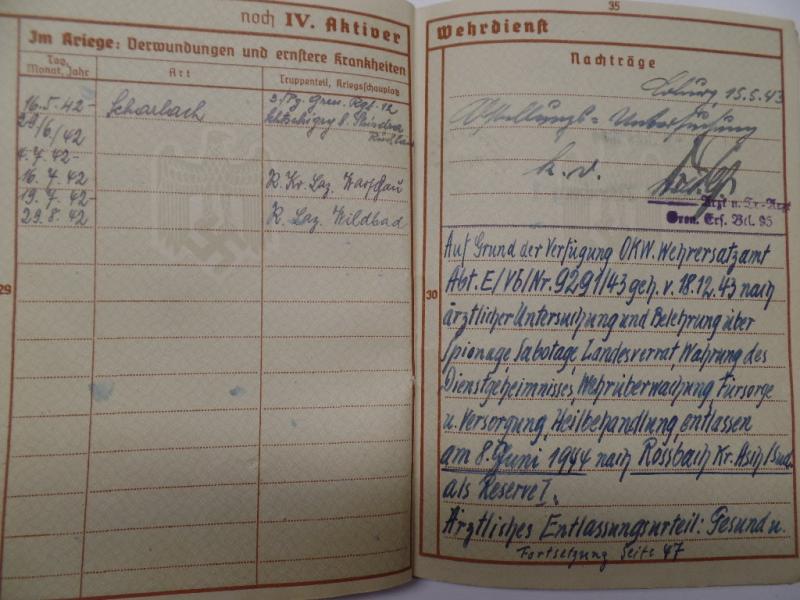 noch IV. Aktiver
Im Kriege: Verwundungen und ernstere Krankheiten
Tag, Monat, Jahr
Art
Truppenteil, Kriegsschauplatz
16.5.42-
Scharlach
Gren. Rgt. 12
29/6/42
4.7.42-
16.7.42
R. Kr. Laz. Warschau
19.7.42-
29.8.42
R. Laz. Wildbad
29
35
Wehrdienst
Nachträge
Coburg, 15.5.43
Abstellungs-Untersuchung
k.v.
Arzt u.
Gren. Ers. Btl. 95
30
Auf Grund der Verfügung OKW. Wehrersatzamt
Abt. E/Vb/Nr. 9291/43 geh. v. 18.12.43 nach
ärztlicher Untersuchung und Belehrung über
Spionage Sabotage, Landesverrat, Wahrung des
Dienstgeheimnisses, Wehrüberwachung Fürsorge
u. Versorgung, Heilbehandlung, entlassen
am 8. Juni 1944 nach Rossbach Kr. Asch/Sud.
als Reserve I.
Ärztliches Entlassungsurteil: Gesund u.
Fortsetzung Seite 47